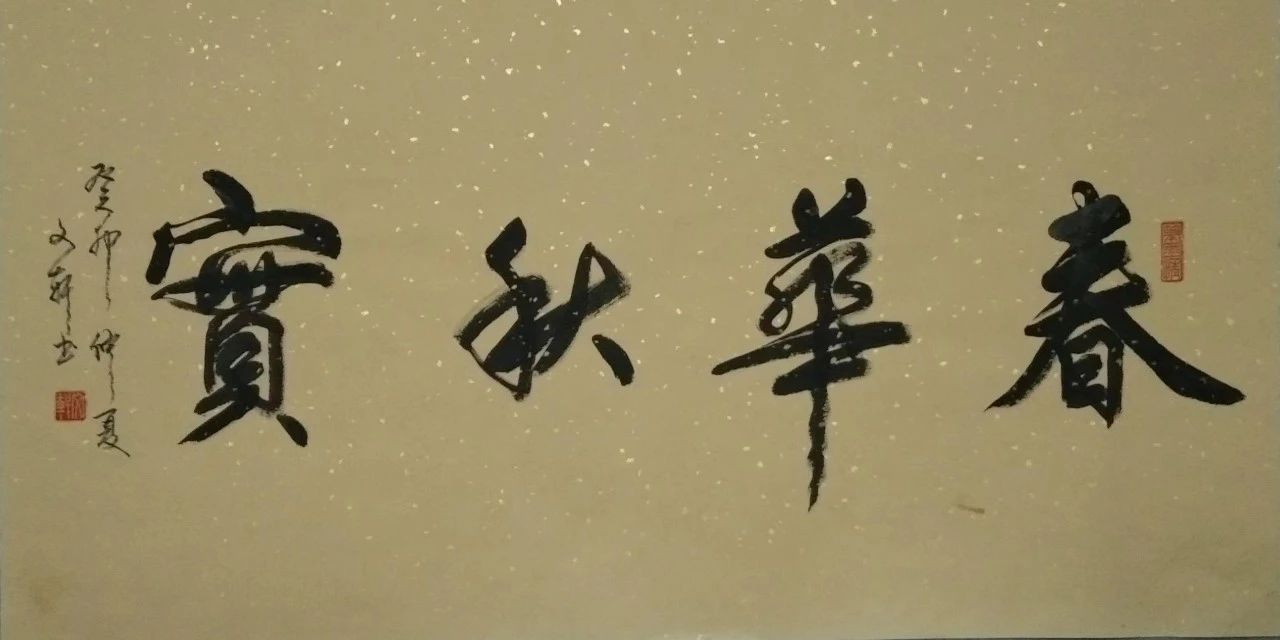 春華秋實
癸卯仲夏
文軒书